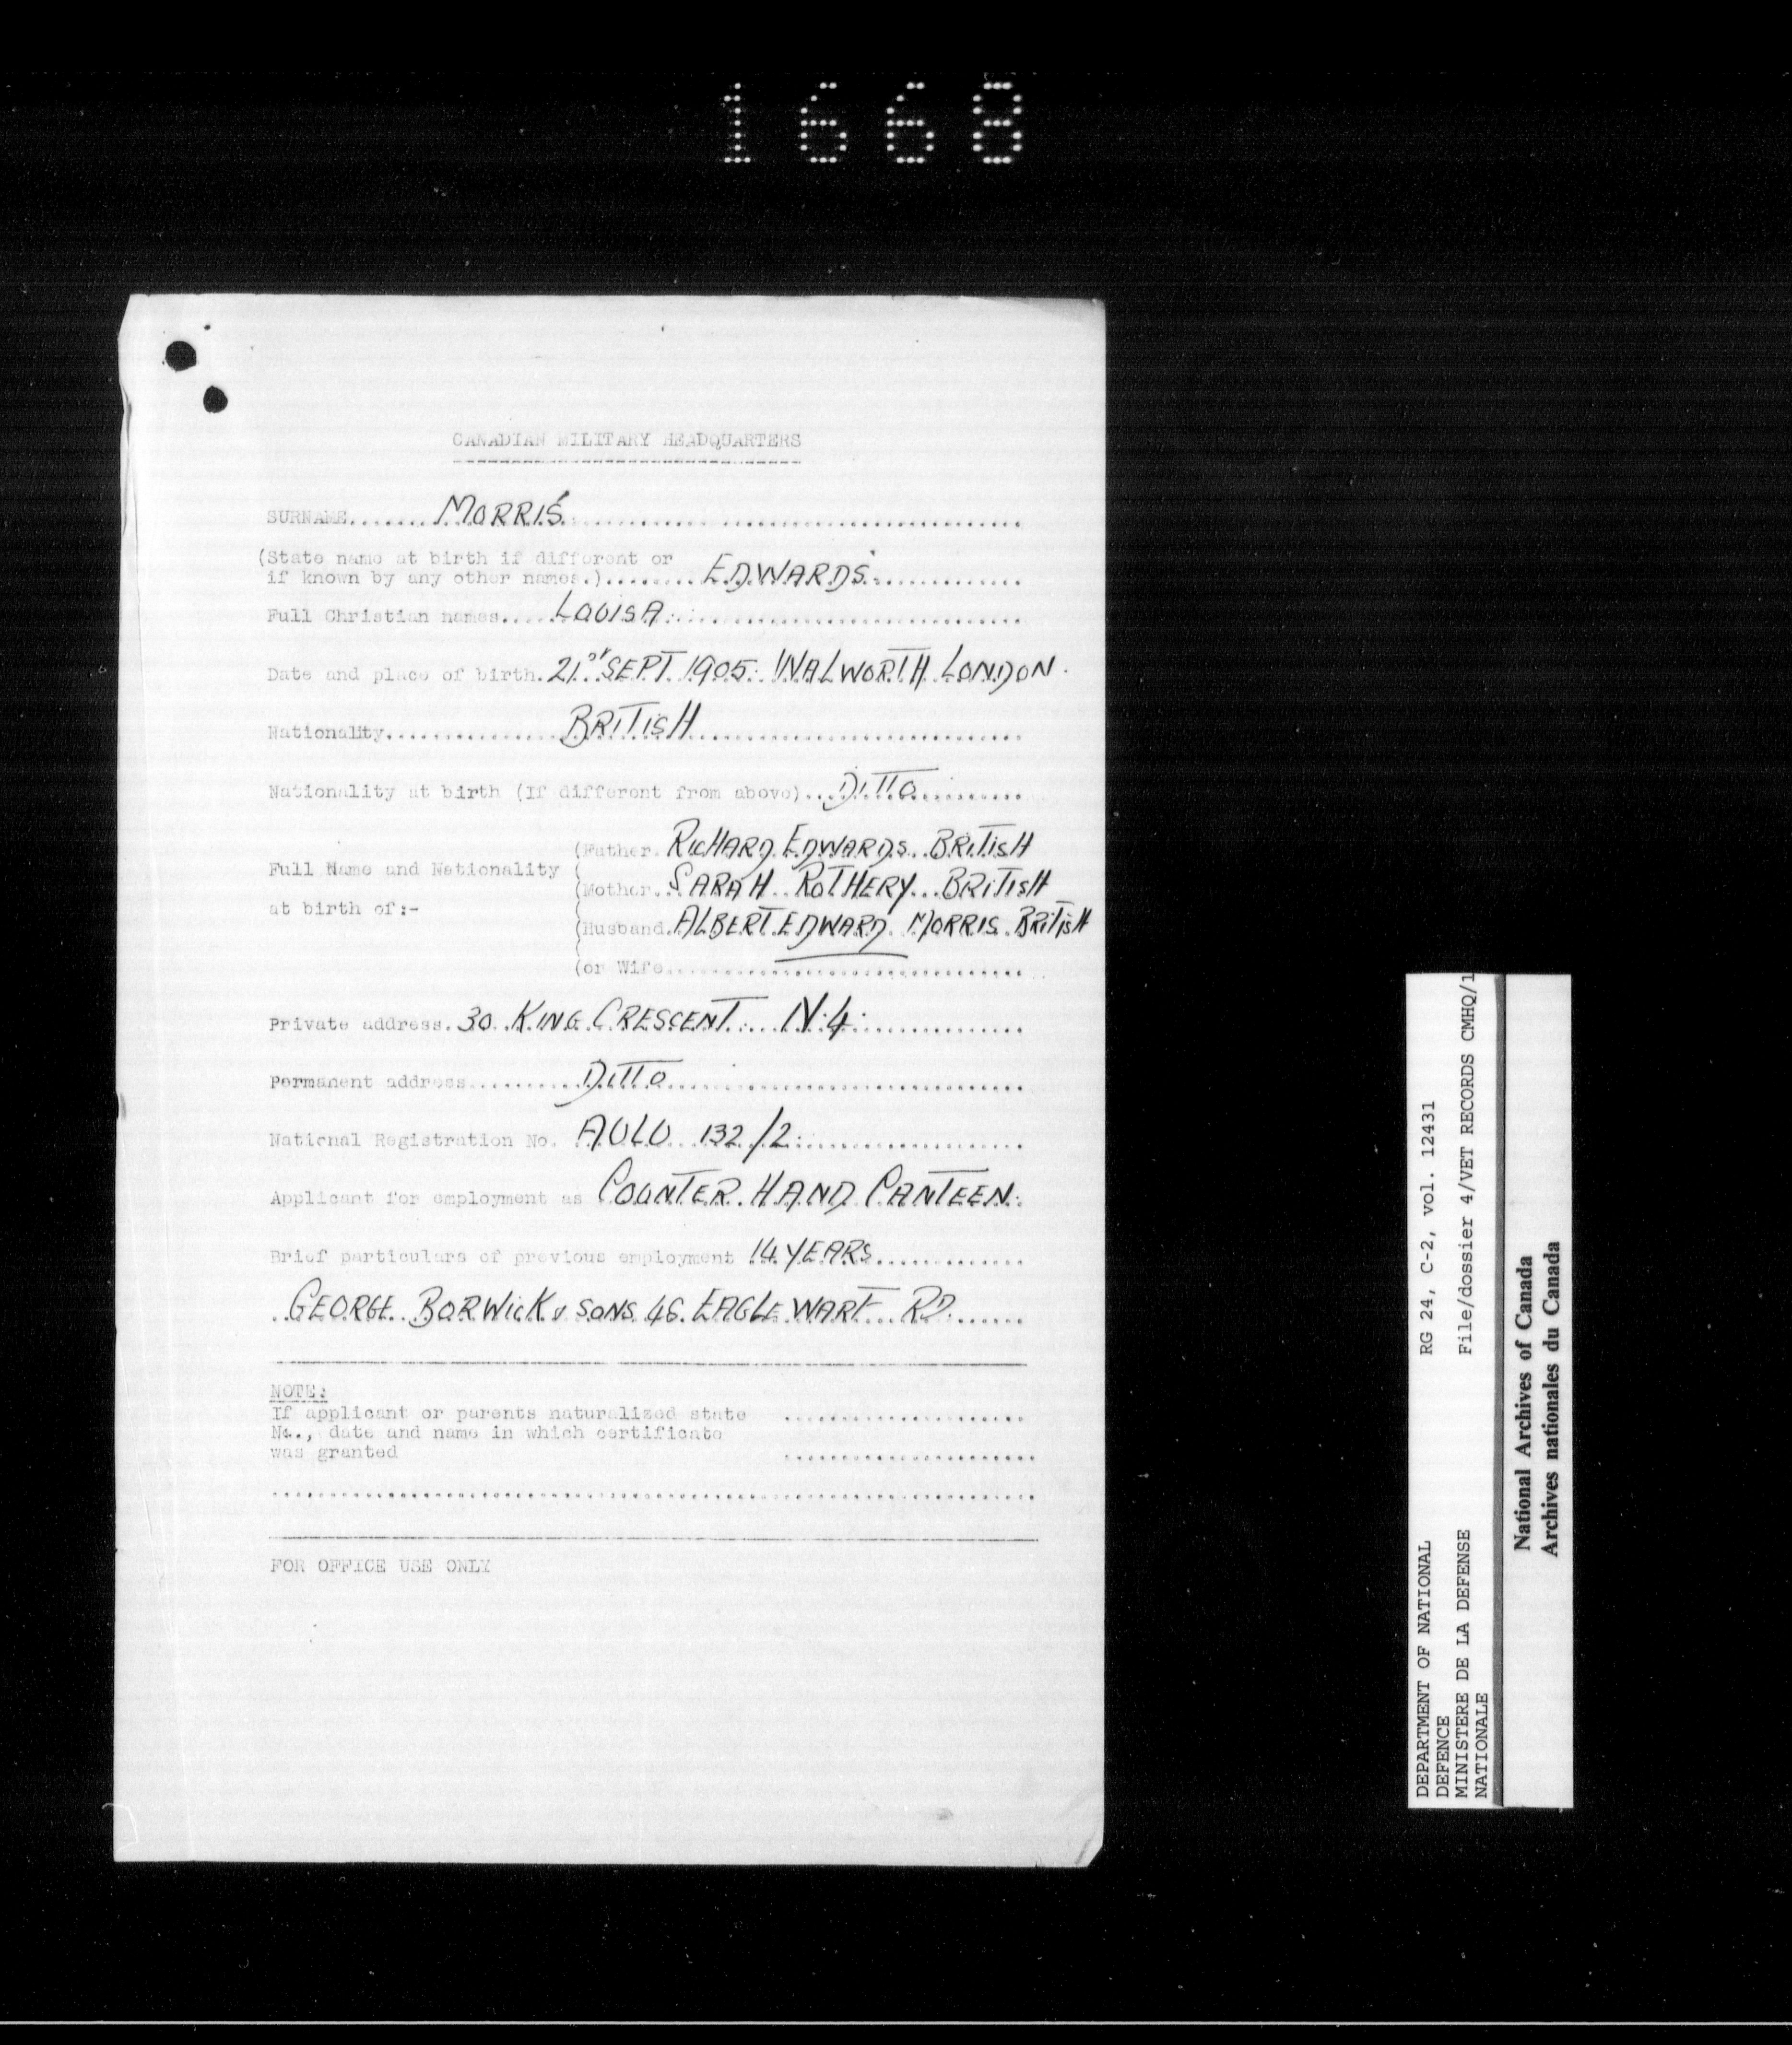 1668
CANADIAN MILITARY HEADQUARTERS
SURNAME....... MORRIS
(State name at birth if different or
if known by any other names.)....... EDWARDS
Full Christian names.... LOUISA
Date and place of birth. 21ST SEPT 1905. WALWORTH LONDON.
Nationality............... BRITISH
Nationality at birth (If different from above).. DITTO
(Father. RICHARD EDWARDS.. BRITISH
Full Name and Nationality (
(Mother.. SARAH ROTHERY... BRITISH
at birth of:-
(Husband. ALBERT EDWARD MORRIS. BRITISH
(or Wife
Private address. 30 KING CRESCENT... N.4.
Permanent address......... DITTO
National Registration No. AULU 132/2
Applicant for employment as COUNTER HAND CANTEEN.
Brief particulars of previous employment 14 YEARS
GEORGE BORWICK & SONS 46. EAGLE WARF RD.
NOTE:
If applicant or parents naturalized state
No., date and name in which certificate
was granted
FOR OFFICE USE ONLY
DEPARTMENT OF NATIONAL
DEFENCE
MINISTERE DE LA DEFENSE
NATIONALE
RG 24, C-2, vol. 12431
File/dossier 4/VET RECORDS CMHQ/1
National Archives of Canada
Archives nationales du Canada